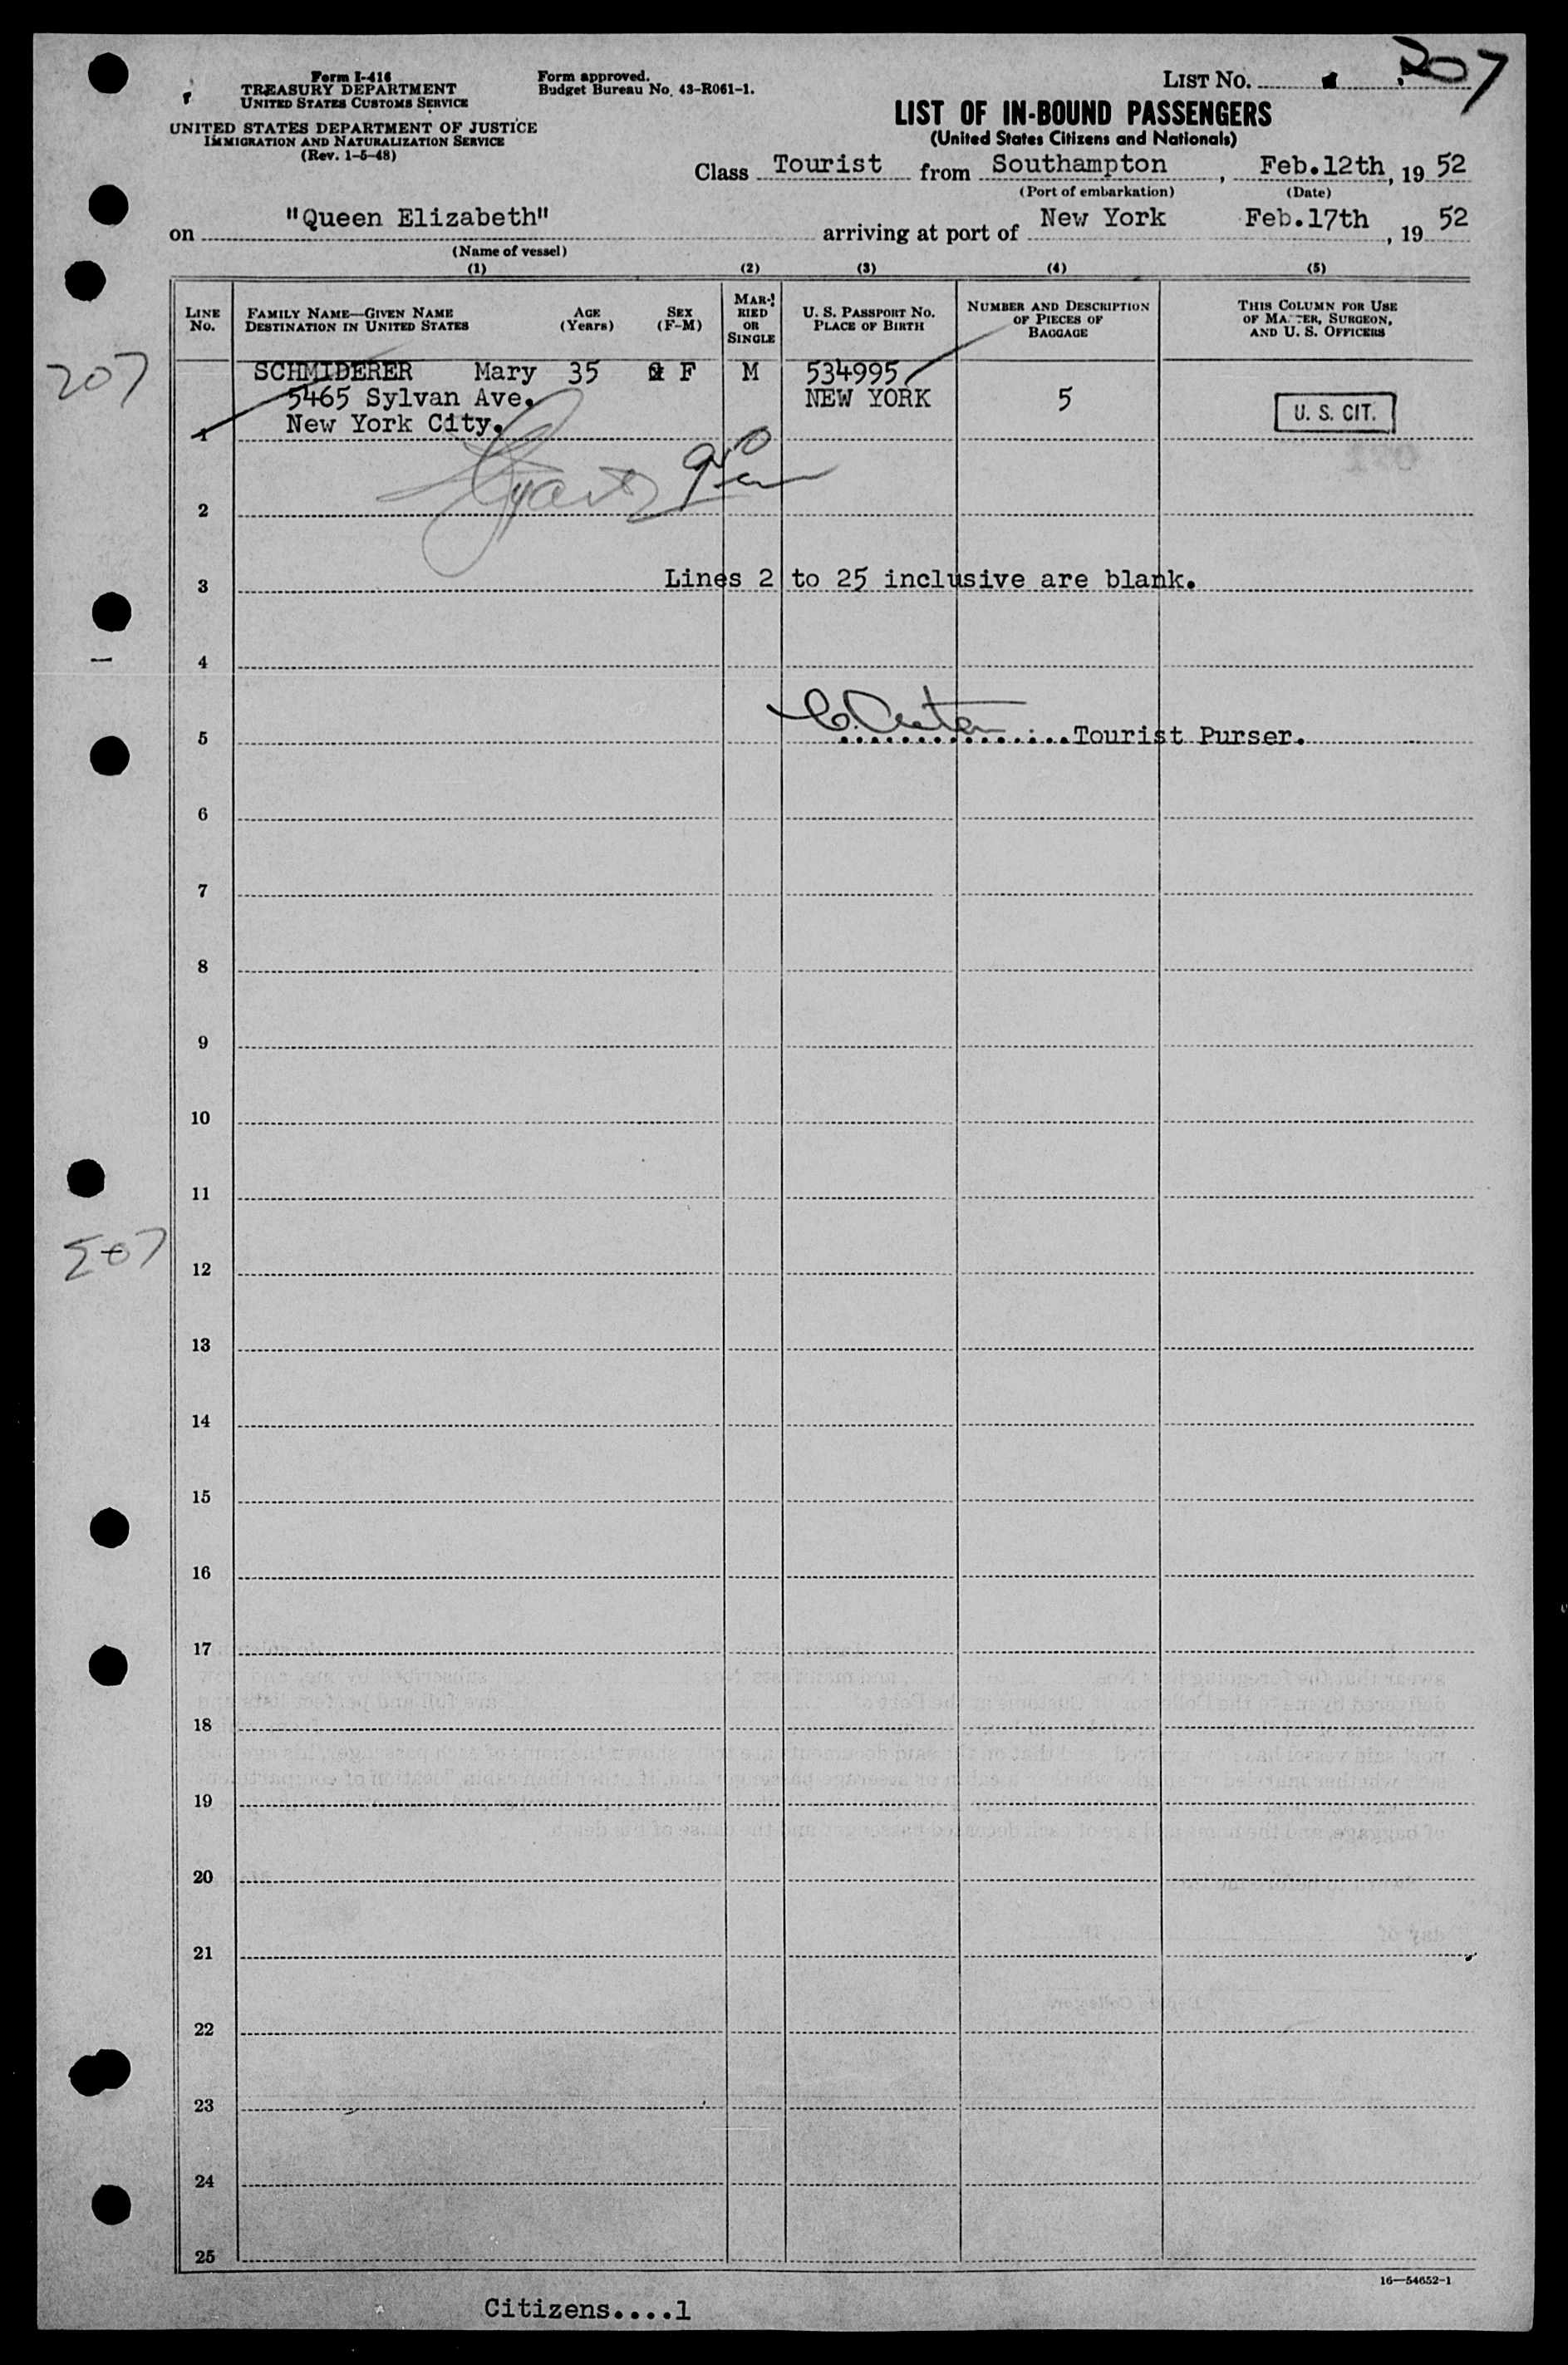 Form I-416
TREASURY DEPARTMENT
UNITED STATES CUSTOMS SERVICE
UNITED STATES DEPARTMENT OF JUSTICE
IMMIGRATION AND NATURALIZATION SERVICE
(Rev. 1-5-48)
Form approved.
Budget Bureau No. 43-R061-1.
LIST NO. 207
LIST OF IN-BOUND PASSENGERS
(United States Citizens and Nationals)
Class Tourist from Southampton, Feb.12th, 19 52
(Port of embarkation) (Date)
on "Queen Elizabeth" arriving at port of New York Feb.17th, 19 52
(Name of vessel)
(1) (2) (3) (4) (5)
LINE NO.
FAMILY NAME—GIVEN NAME
DESTINATION IN UNITED STATES
AGE (Years)
SEX (F-M)
MARRIED OR SINGLE
U. S. PASSPORT NO.
PLACE OF BIRTH
NUMBER AND DESCRIPTION OF PIECES OF BAGGAGE
THIS COLUMN FOR USE OF MASTER, SURGEON, AND U. S. OFFICERS
207
SCHMIDERER Mary 35 F M 534995
5465 Sylvan Ave. NEW YORK 5 U. S. CIT.
New York City.
1
2
3 Lines 2 to 25 inclusive are blank.
4
5 ...............Tourist Purser.
6
7
8
9
10
11
207
12
13
14
15
16
17
18
19
20
21
22
23
24
25
16—54652-1
Citizens....1